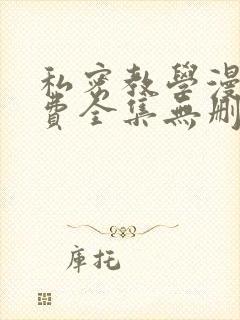 私密教學漫
費全集無刪
庫托